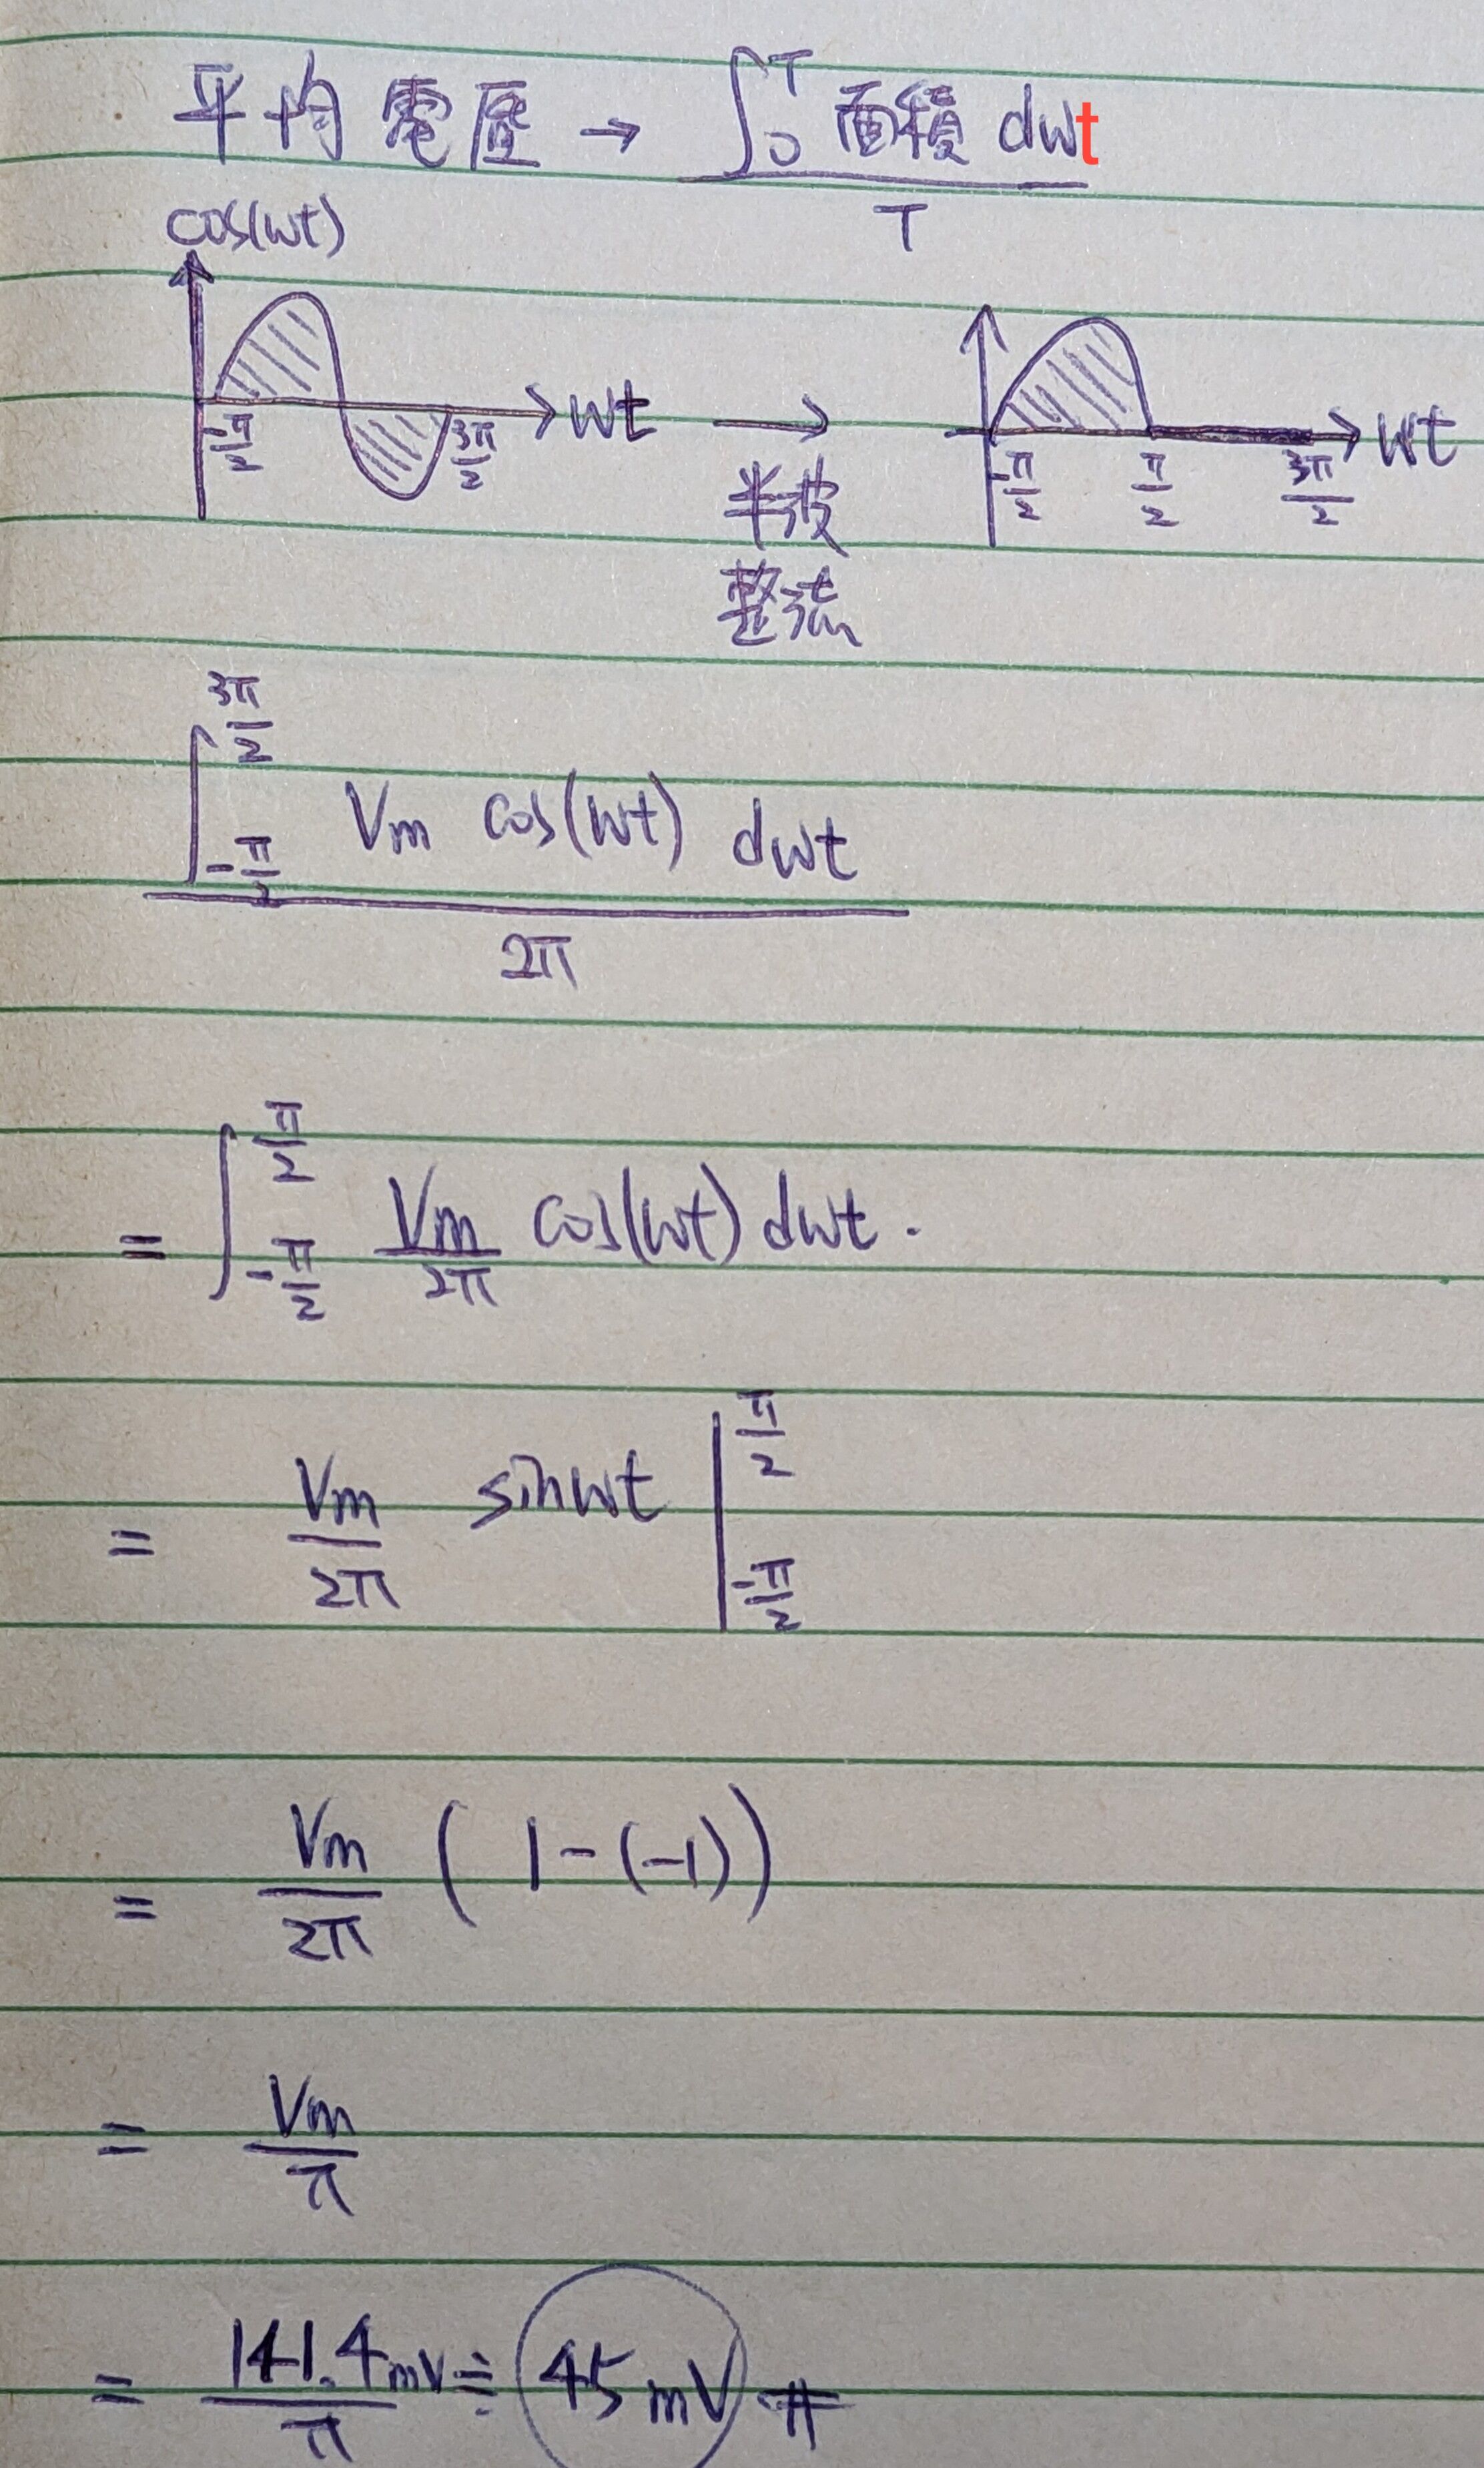 平均電壓 → ∫₀ᵀ 面積 dwt / T
cos(wt)
-π/2 3π/2 wt → -π/2 π/2 3π/2 wt
半波
整流
∫_{-π/2}^{3π/2} Vm cos(wt) dwt / 2π
= ∫_{-π/2}^{π/2} Vm/2π cos(wt) dwt .
= Vm/2π sinwt |_{-π/2}^{π/2}
= Vm/2π ( 1-(-1))
= Vm/π
= 141.4mV/π ≒ 45mV #